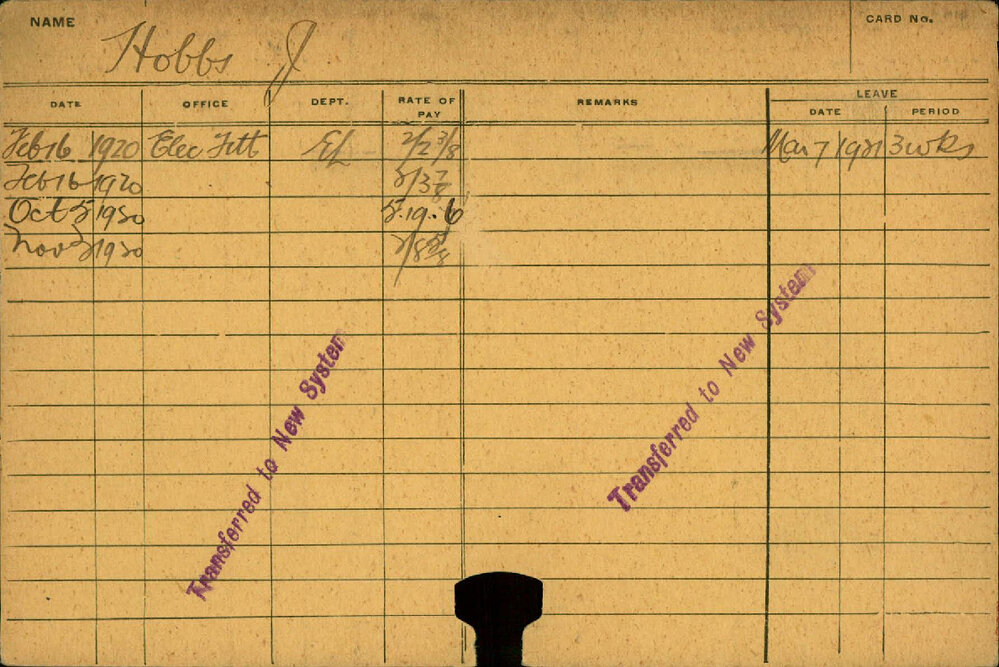 NAME
Hobbs J
CARD No.
DATE OFFICE DEPT. RATE OF PAY REMARKS LEAVE
DATE PERIOD
Feb 16 1920 Elec Fitt El 2/2 3/8 Mar 7 1921 3 wks
Feb 16 1920 2/3 7/8
Oct 5 1920 5.19.6
Nov 1920
Transferred to New System
Transferred to New System